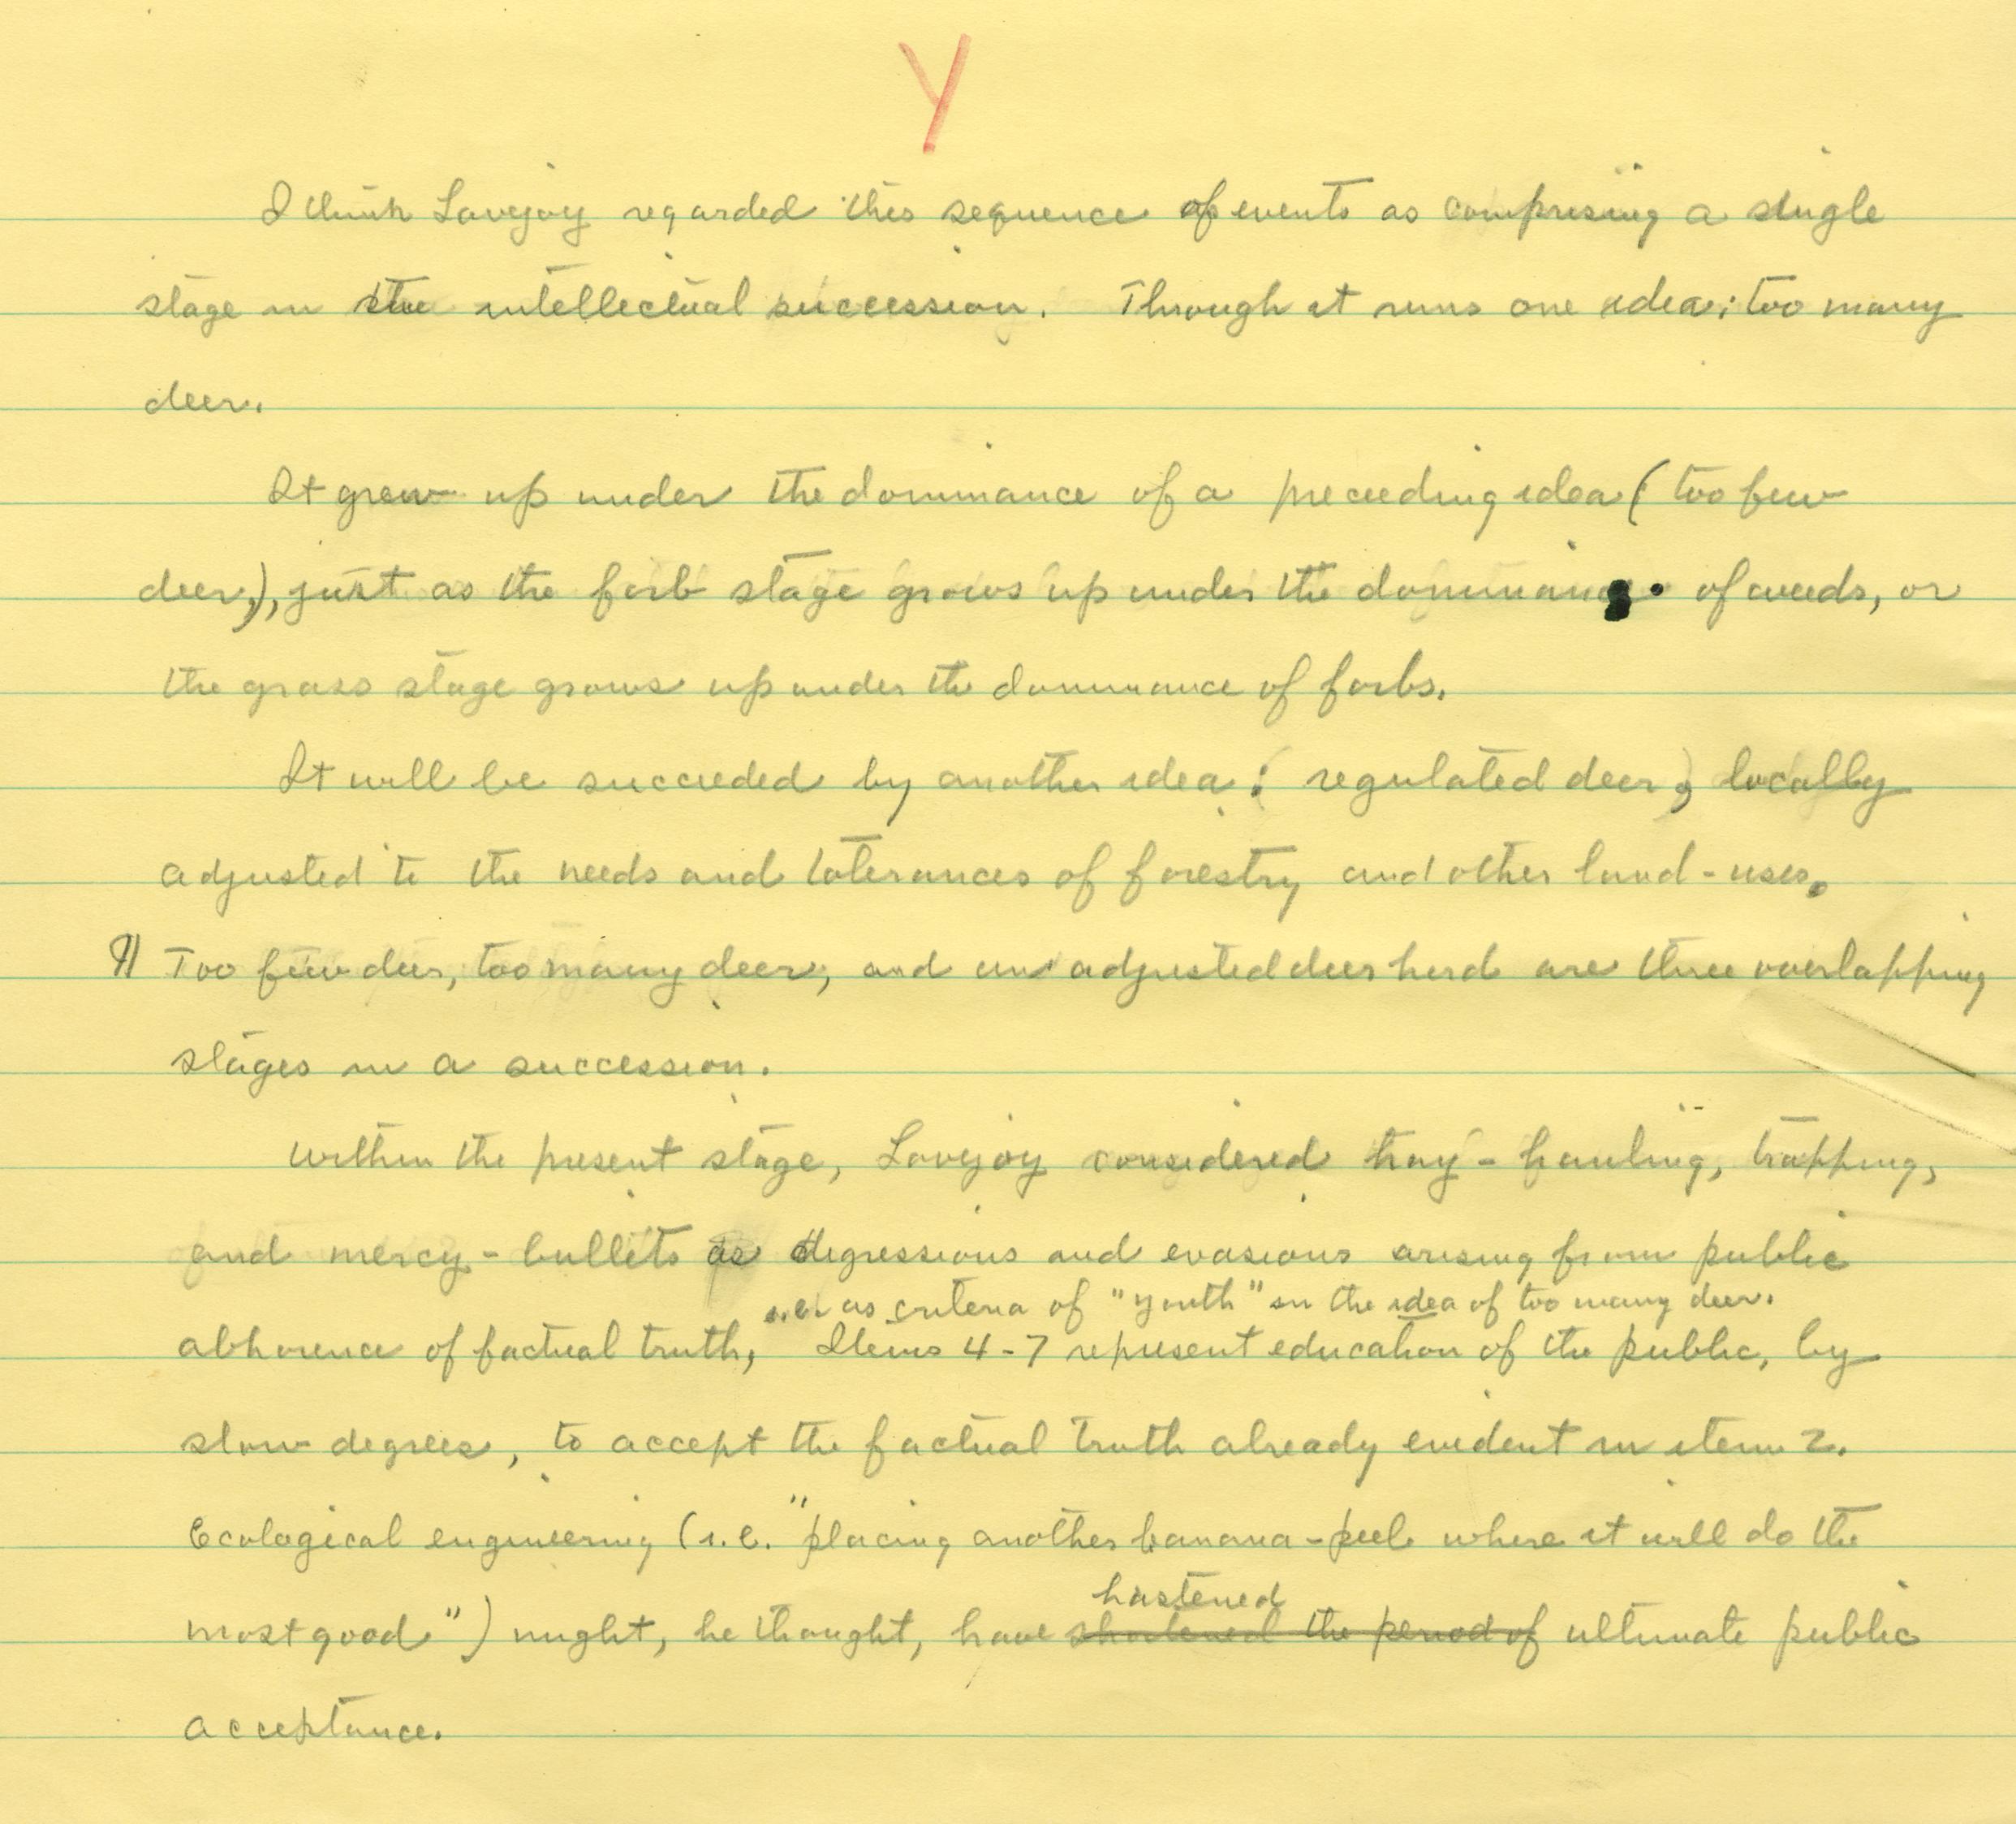 Y
I think Lovejoy regarded this sequence of events as comprising a single
stage in the intellectual succession. Through it runs one idea: too many
deer.
It grew up under the dominance of a preceeding idea (too few
deer), just as the forb stage grows up under the dominance of weeds, or
the grass stage grows up under the dominance of forbs.
It will be succeeded by another idea: regulated deer, locally
adjusted to the needs and tolerances of forestry and other land-uses.
¶ Too few deer, too many deer, and an adjusted deer herd are three overlapping
stages in a succession.
Within the present stage, Lovejoy considered hay-hauling, trapping,
and mercy-bullets as digressions and evasions arising from public
i.e. as criteria of "youth" in the idea of too many deer.
abhorence of factual truth, Items 4-7 represent education of the public, by
slow degrees, to accept the factual truth already evident in item 2.
Ecological engineering (i.e. "placing another banana-peel where it will do the
hastened
most good") might, he thought, have shortened the period of ultimate public
acceptance.